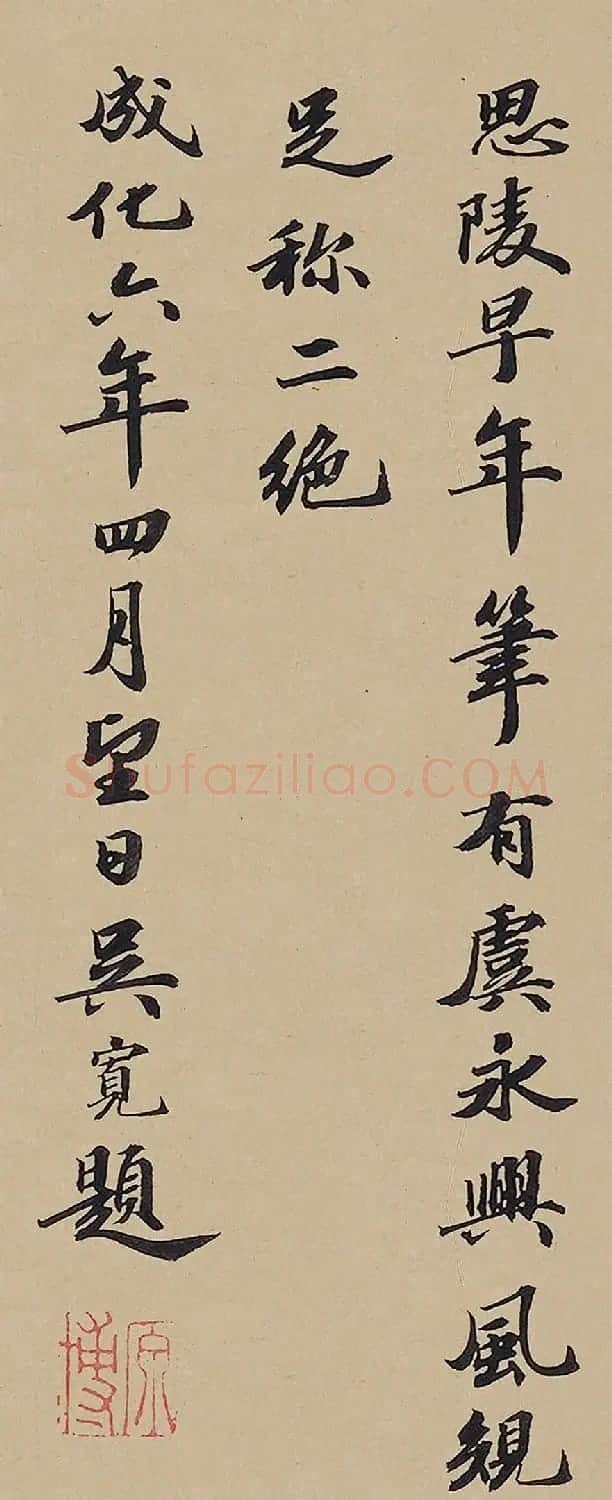 思陵早年筆有虞永興風䂓
足称二絶
成化六年四月望日吴寬題
原博
Shufaziliao.COM